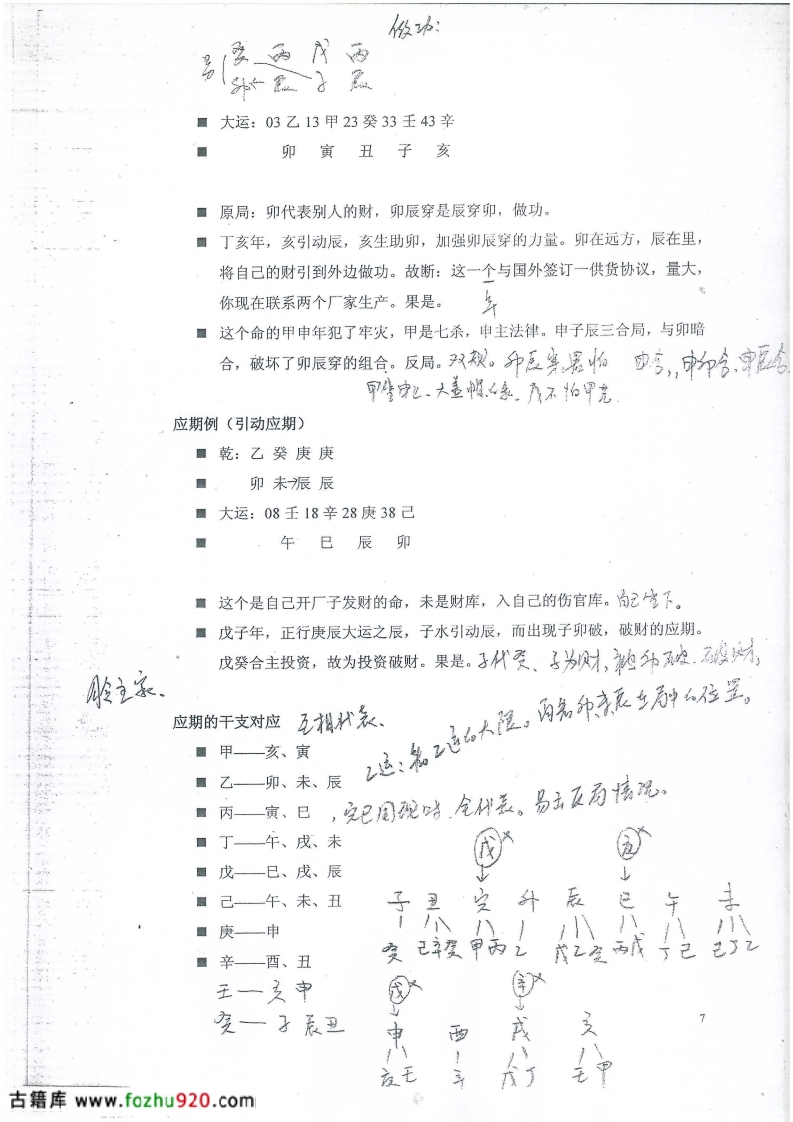 做功：
癸 丙 戊 丙
卯 辰 子 辰
■ 大运：03 乙 13 甲 23 癸 33 壬 43 辛
■ 卯 寅 丑 子 亥
■ 原局：卯代表别人的财，卯辰穿是辰穿卯，做功。
■ 丁亥年，亥引动辰，亥生助卯，加强卯辰穿的力量。卯在远方，辰在里，
将自己的财引到外边做功。故断：这一个与国外签订一供货协议，量大，
你现在联系两个厂家生产。果是。 年
■ 这个命的甲申年犯了牢灾，甲是七杀，申主法律。申子辰三合局，与卯暗
合，破坏了卯辰穿的组合。反局。双规。卯辰穿害怕 申合，申卯合、申辰合
戊不怕甲克
应期例（引动应期）
■ 乾：乙 癸 庚 庚
■ 卯 未→辰 辰
■ 大运：08 壬 18 辛 28 庚 38 己
■ 午 巳 辰 卯
■ 这个是自己开厂子发财的命，未是财库，入自己的伤官库。自己坐下。
■ 戊子年，正行庚辰大运之辰，子水引动辰，而出现子卯破，破财的应期。
戊癸合主投资，故为投资破财。果是。子代癸、子为财，
应期的干支对应 互相代表、
乙运： 乙运的大限。再看卯、未、辰在局中的位置。
■ 甲——亥、寅
■ 乙——卯、未、辰
■ 丙——寅、巳 ，寅巳同现时、全代表。易出反局情况。
■ 丁——午、戌、未
■ 戊——巳、戌、辰
■ 己——午、未、丑
■ 庚——申
■ 辛——酉、丑
壬——亥申
癸——子辰丑
戊× 庚×
子 丑 寅 卯 辰 巳 午 未
癸 己辛癸 甲丙 乙 戊乙癸 丙戊 丁己 己丁乙
戊× 辛×
申 酉 戌 亥
庚壬 辛 戊丁 壬甲
7
古籍库 www.fozhu920.com